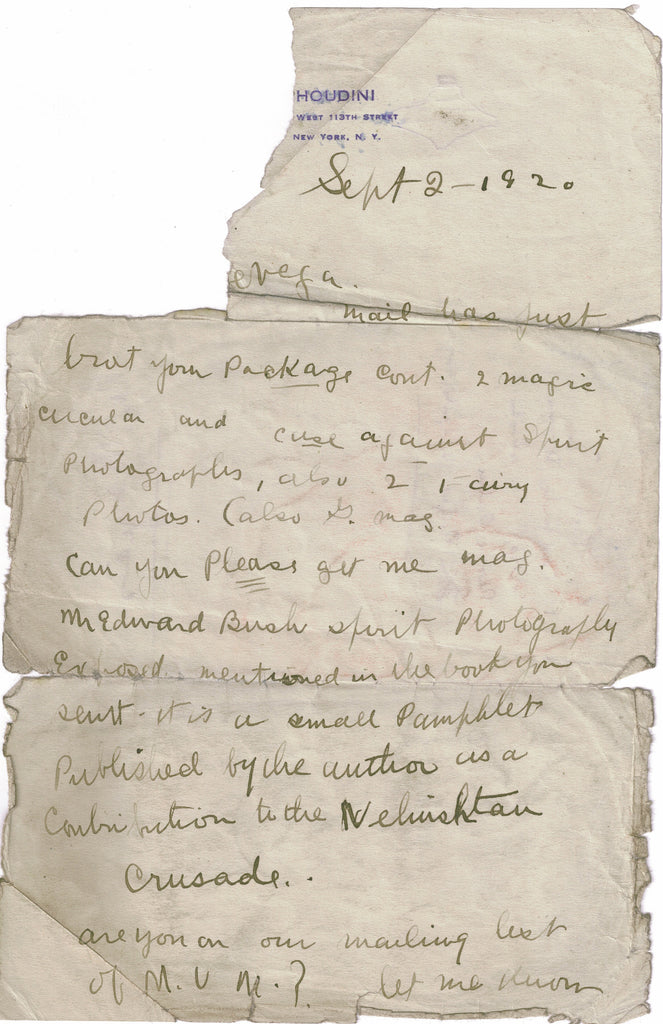 HOUDINI
WEST 113TH STREET
NEW YORK, N. Y.
Sept 2 - 1920
Vega.
mail has just
brot your Package cont. 2 magic
circular and case against Spirit
Photographs, also 2 Fairy
Photos. (also G. mag.
Can you Please get me mag.
Mr Edward Bush spirit Photografly
Exposed. mentioned in the book you
sent - it is a small Pamphlet
Published by the author as a
Contribution to the Nehushtan
Crusade..
are you on our mailing list
of M. U M. ? let me know